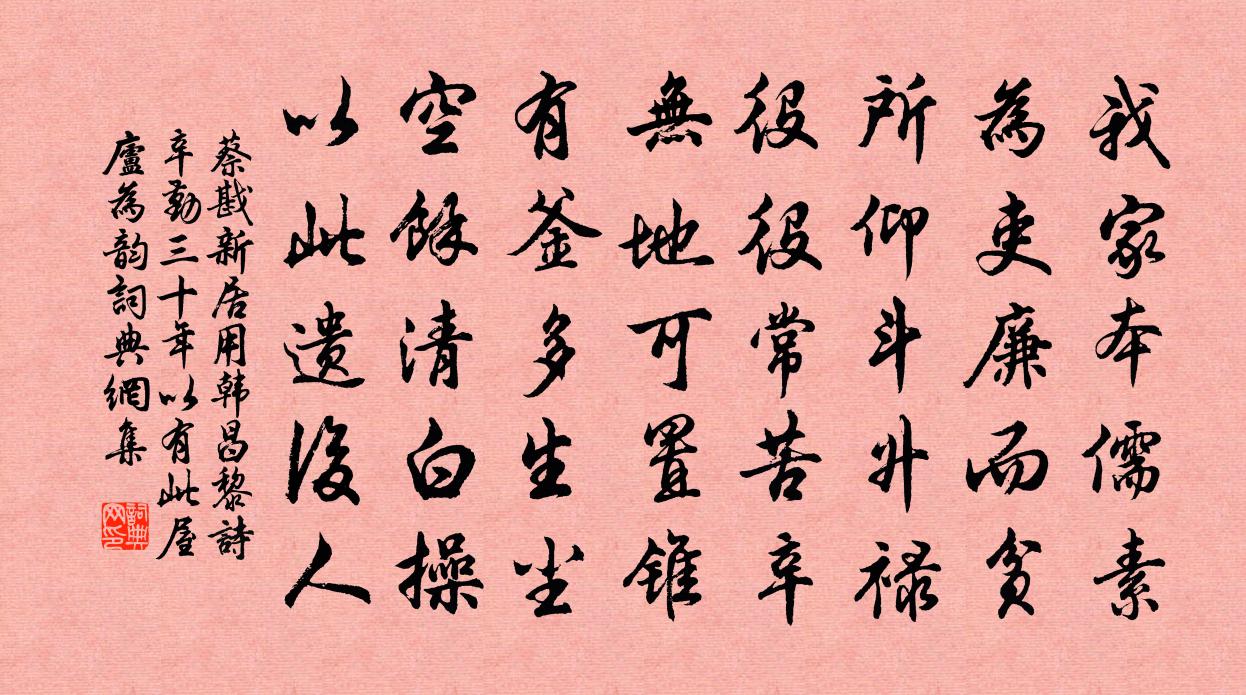 我家本儒素
為吏廉而貧
所仰斗升禄
役役常苦辛
無地可置錐
有釜多生尘
空餘清白操
以此遗後人
蔡戡新居用韩昌黎詩
辛勤三十年以有此屋
廬為韵詞典網集
詞典网印